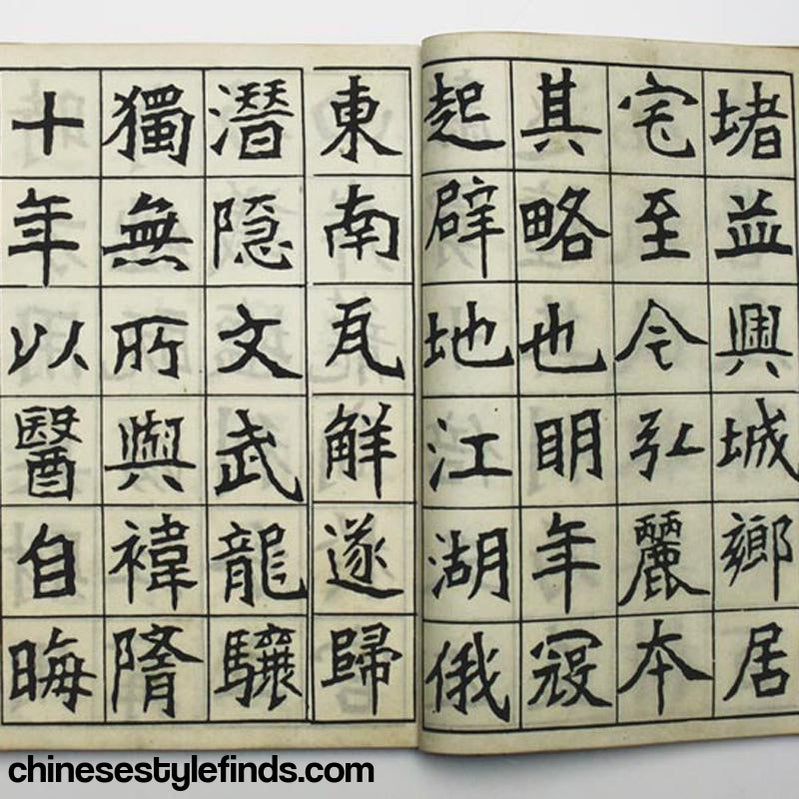 堵益興城鄉居
宅至今弘麗本
其略也眀年冦
起辟地江湖俄
東南瓦觧遂歸
潛隐文武龍驤
獨無所與禕隋
十年以醫自晦
chinesestylefinds.com